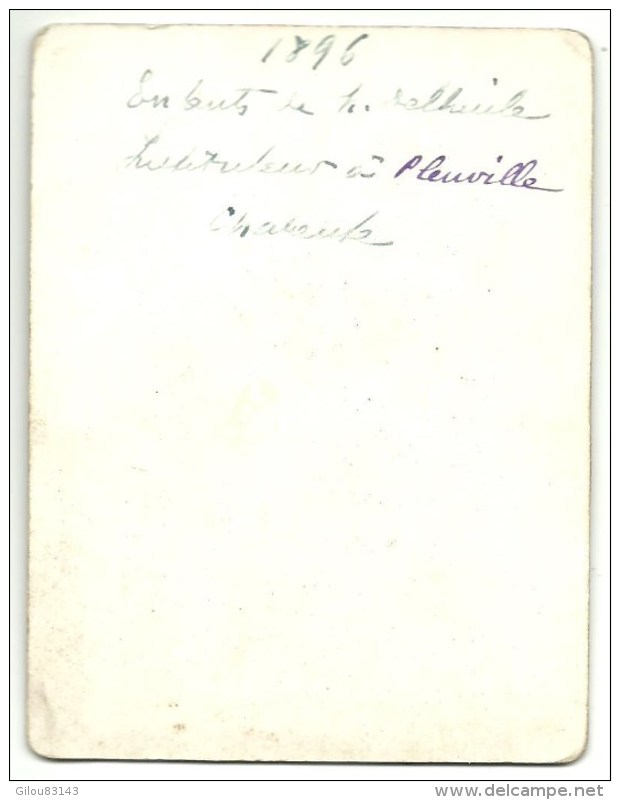 1896
Enfants de M. Delheule
Instituteur à Pleuville
Charente
Gilou83143
www.delcampe.net